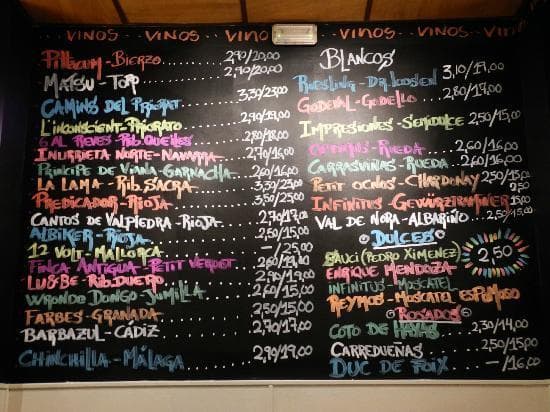 VINOS - VINOS - VINOS - VINO - VINOS - VINOS - VINOS
Pittacum - Bierzo 2,90/20,00
Matsu - Toro 2,90/20,00
Camins del Priorat 3,30/23,00
L'inconscient - Priorato 2,90/19,00
6 al Reves - Rib. Queiles 2,80/18,00
Inurrieta Norte - Navarra 2,70/16,00
Principe de Viana - Garnacha 2,60/16,00
La Lama - Rib. Sacra 3,50/25,00
Predicador - Rioja 3,50/25,00
Cantos de Valpiedra - Rioja 2,70/17,00
Albiker - Rioja 2,50/15,00
12 Volt - Mallorca - /25,00
Finca Antigua - Petit Verdot
Luis&Be - Rib. Duero 2,90/19,00
Wrongo Dongo - Jumilla 2,60/15,00
Farbes - Granada 2,50/15,00
Barbazul - Cádiz 2,70/17,00
Chinchilla - Málaga 2,90/19,00
Blancos
Riesling - Dr. Loosen 3,10/17,00
Godeval - Godello 2,80/17,00
Impresiones - Semidulce 2,50/15,00
- Rueda 2,60/16,00
Carrasviñas - Rueda 2,60/16,00
Petit Ocnos - Chardonay 2,50/15,00
Infinitus - Gewürztraminer 2,50/15,00
Val de Nora - Albariño 2,50/15,00
Dulces
Sauci (Pedro Ximenez)
Enrique Mendoza
2,50
Infinitus - Moscatel
Reymos - Moscatel Espumoso
Rosados
Coto de Hayas 2,30/14,00
Carredueñas 2,50/15,00
Duc de Foix - /16,00